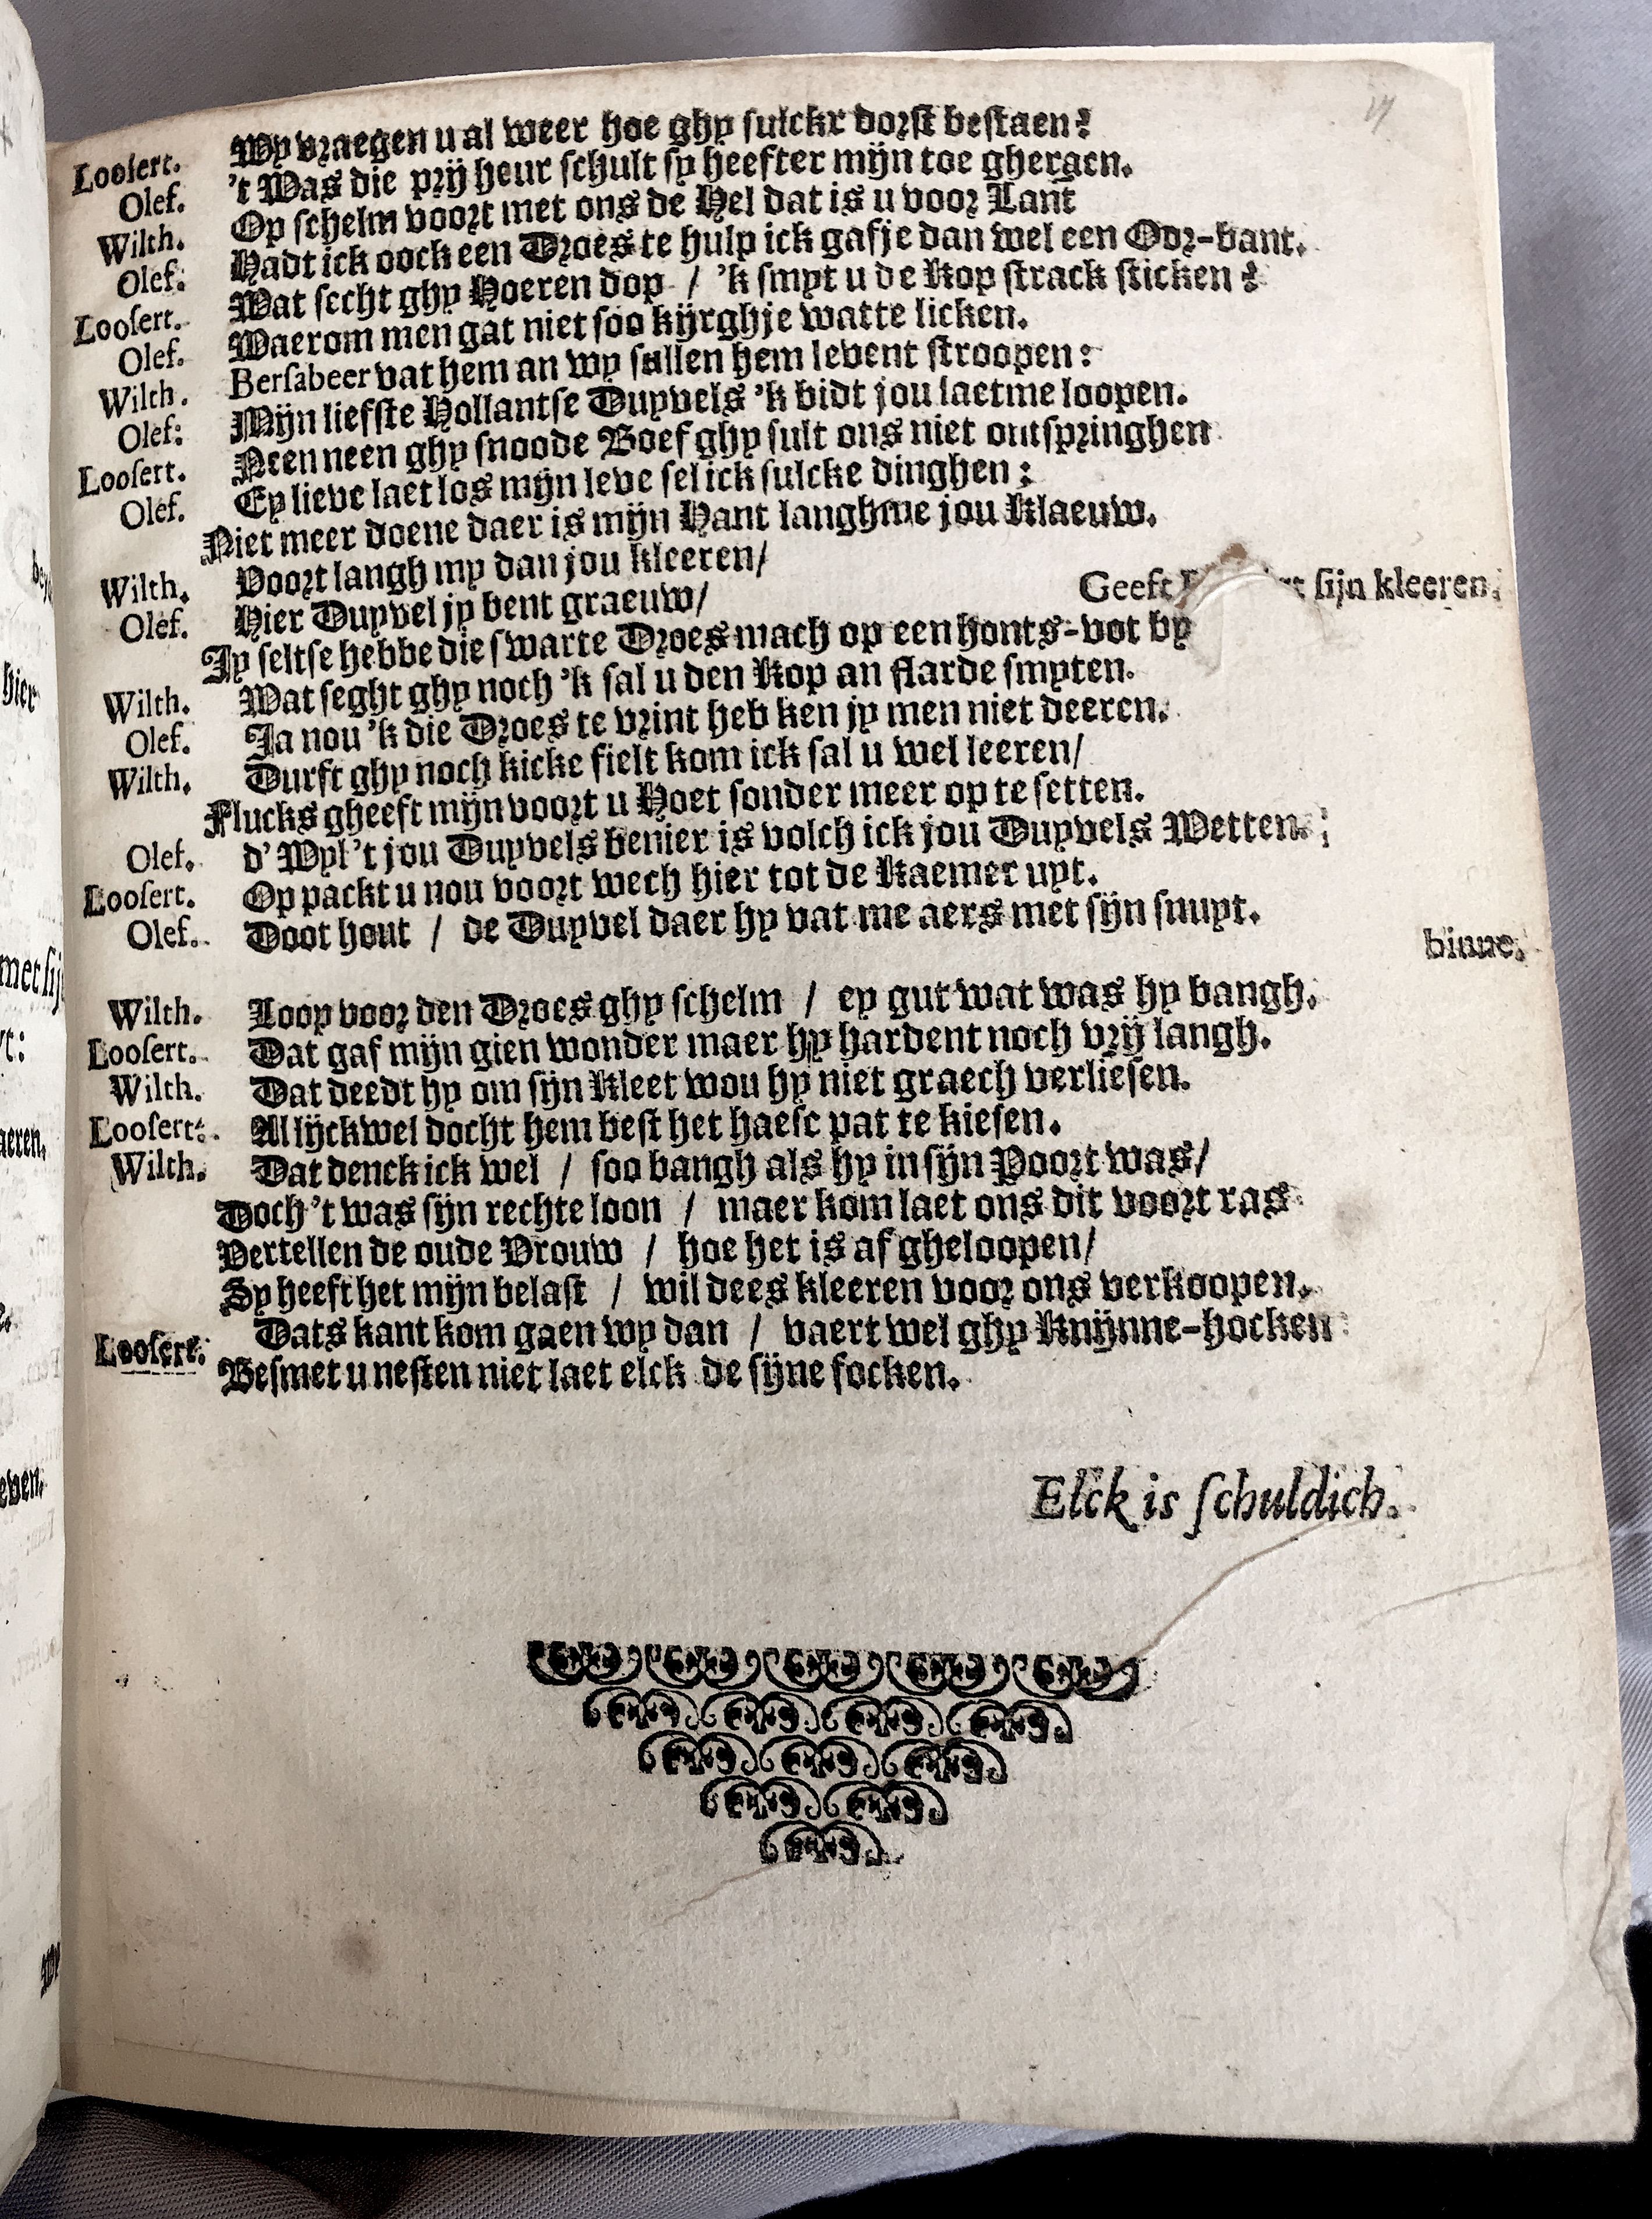 Loosert. Wy vraegen u al weer hoe ghy sulckr dorst bestaen?
Olef. 't Was die prij heur schult sy heefter mijn toe gheraen.
Wilth. Op schelm voort met ons de Hel dat is u voor Lant
Olef: Hadt ick oock een Droes te hulp ick gafje dan wel een Oor-bant.
Loosert. Wat secht ghy Hoeren dop / 'k smyt u de Kop strack sticken?
Olef. Waerom men gat niet soo kijrghje watte licken.
Wilth. Bersabeer vat hem an wy sullen hem levent stroopen:
Olef: Mijn liefste Hollantse Duyvels 'k bidt jou laetme loopen.
Loosert. Neen neen ghy snoode Boef ghy sult ons niet ontspringhen
Olef. Ey lieve laet los mijn leve sel ick sulcke dinghen:
Niet meer doene daer is mijn Hant langhme jou Klaeuw.
Wilth. Voort langh my dan jou kleeren/
Geeft sijn kleeren.
Olef. Hier Duyvel jy bent graeuw/
Jy seltse hebbe die swarte Droes mach op een honts-vot by
Wilth. Wat seght ghy noch 'k sal u den Kop an flarde smyten.
Olef. Ja nou 'k die Droes te vrint heb ken jy men niet deeren.
Wilth. Durft ghy noch kicke fielt kom ick sal u wel leeren/
Flucks gheeft mijn voort u Hoet sonder meer op te setten.
Olef. d' Wyl 't jou Duyvels benier is volch ick jou Duyvels Wetten.
Loosert. Op packt u nou voort wech hier tot de Kaemer uyt.
Olef. Doot hout / de Duyvel daer hy vat me aers met sijn snuyt.
binne.
Wilth. Loop voor den Droes ghy schelm / ey gut wat was hy bangh.
Loosert. Dat gaf mijn gien wonder maer hy hardent noch vrij langh.
Wilth. Dat deedt hy om sijn Kleet wou hy niet graech verliesen.
Loosert. Al lijckwel docht hem best het haesc pat te kiesen.
Wilth. Dat denck ick wel / soo bangh als hy in sijn Poort was/
Doch 't was sijn rechte loon / maer kom laet ons dit voort ras
Vertellen de oude Vrouw / hoe het is af gheloopen/
Sy heeft het mijn belast / wil dees kleeren voor ons verkoopen.
Loosert. Dats kant kom gaen wy dan / vaert wel ghy Knijnne-hocken
Besmet u nesten niet laet elck de sijne focken.
Elck is schuldich.